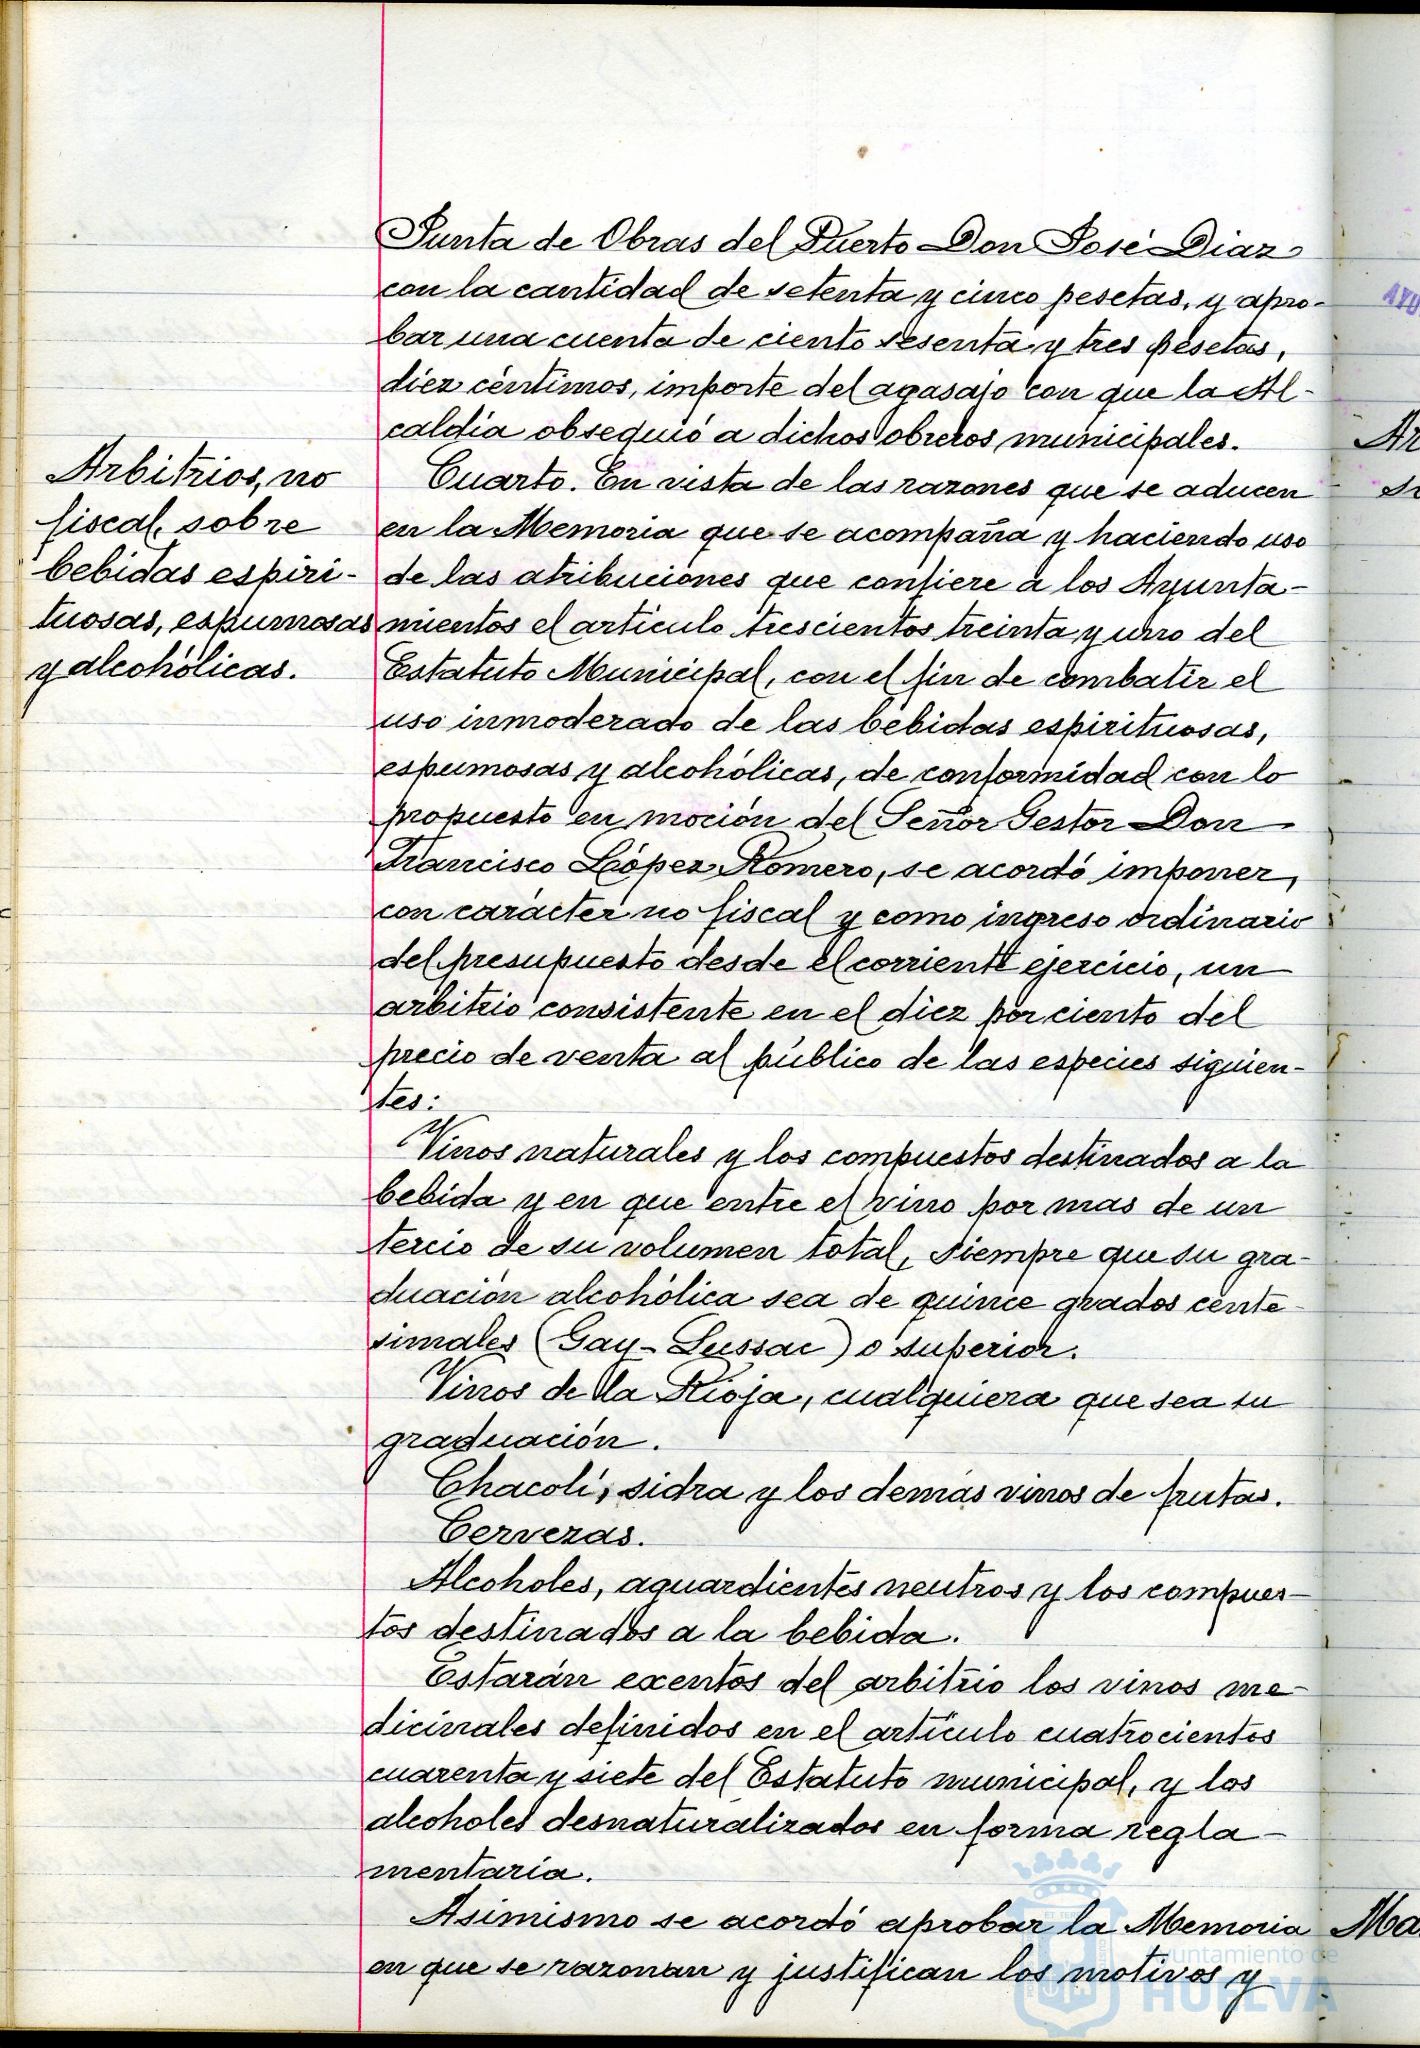 Junta de Obras del Puerto Don José Diaz
con la cantidad de setenta y cinco pesetas, y apro-
bar una cuenta de ciento sesenta y tres pesetas,
diez céntimos, importe del agasajo con que la Al-
caldia obsequió a dichos obreros municipales.
Arbitrios, no
fiscal, sobre
bebidas espiri-
tuosas, espumosas
y alcohólicas.
Cuarto. En vista de las razones que se aducen
en la Memoria que se acompaña y haciendo uso
de las atribuciones que confiere a los Ayunta-
mientos el artículo trescientos treinta y uno del
Estatuto Municipal, con el fin de combatir el
uso inmoderado de las bebidas espirituosas,
espumosas y alcohólicas, de conformidad con lo
propuesto en moción del Señor Gestor Don
Francisco López Romero, se acordó imponer,
con carácter no fiscal y como ingreso ordinario
del presupuesto desde el corriente ejercicio, un
arbitrio consistente en el diez por ciento del
precio de venta al público de las especies siguien-
tes:
Vinos naturales y los compuestos destinados a la
bebida y en que entre el vino por mas de un
tercio de su volumen total, siempre que su gra-
duación alcohólica sea de quince grados cente-
simales (Gay-Lussac) o superior.
Vinos de la Rioja, cualquiera que sea su
graduación.
Chacolí, sidra y los demás vinos de frutas.
Cervezas.
Alcoholes, aguardientes neutros y los compues-
tos destinados a la bebida.
Estarán exentos del arbitrio los vinos me-
dicinales definidos en el artículo cuatrocientos
cuarenta y siete del Estatuto municipal, y los
alcoholes desnaturalizados en forma regla-
mentaria.
Asimismo se acordó aprobar la Memoria
en que se razonan y justifican los motivos y
Ayuntamiento de
HUELVA